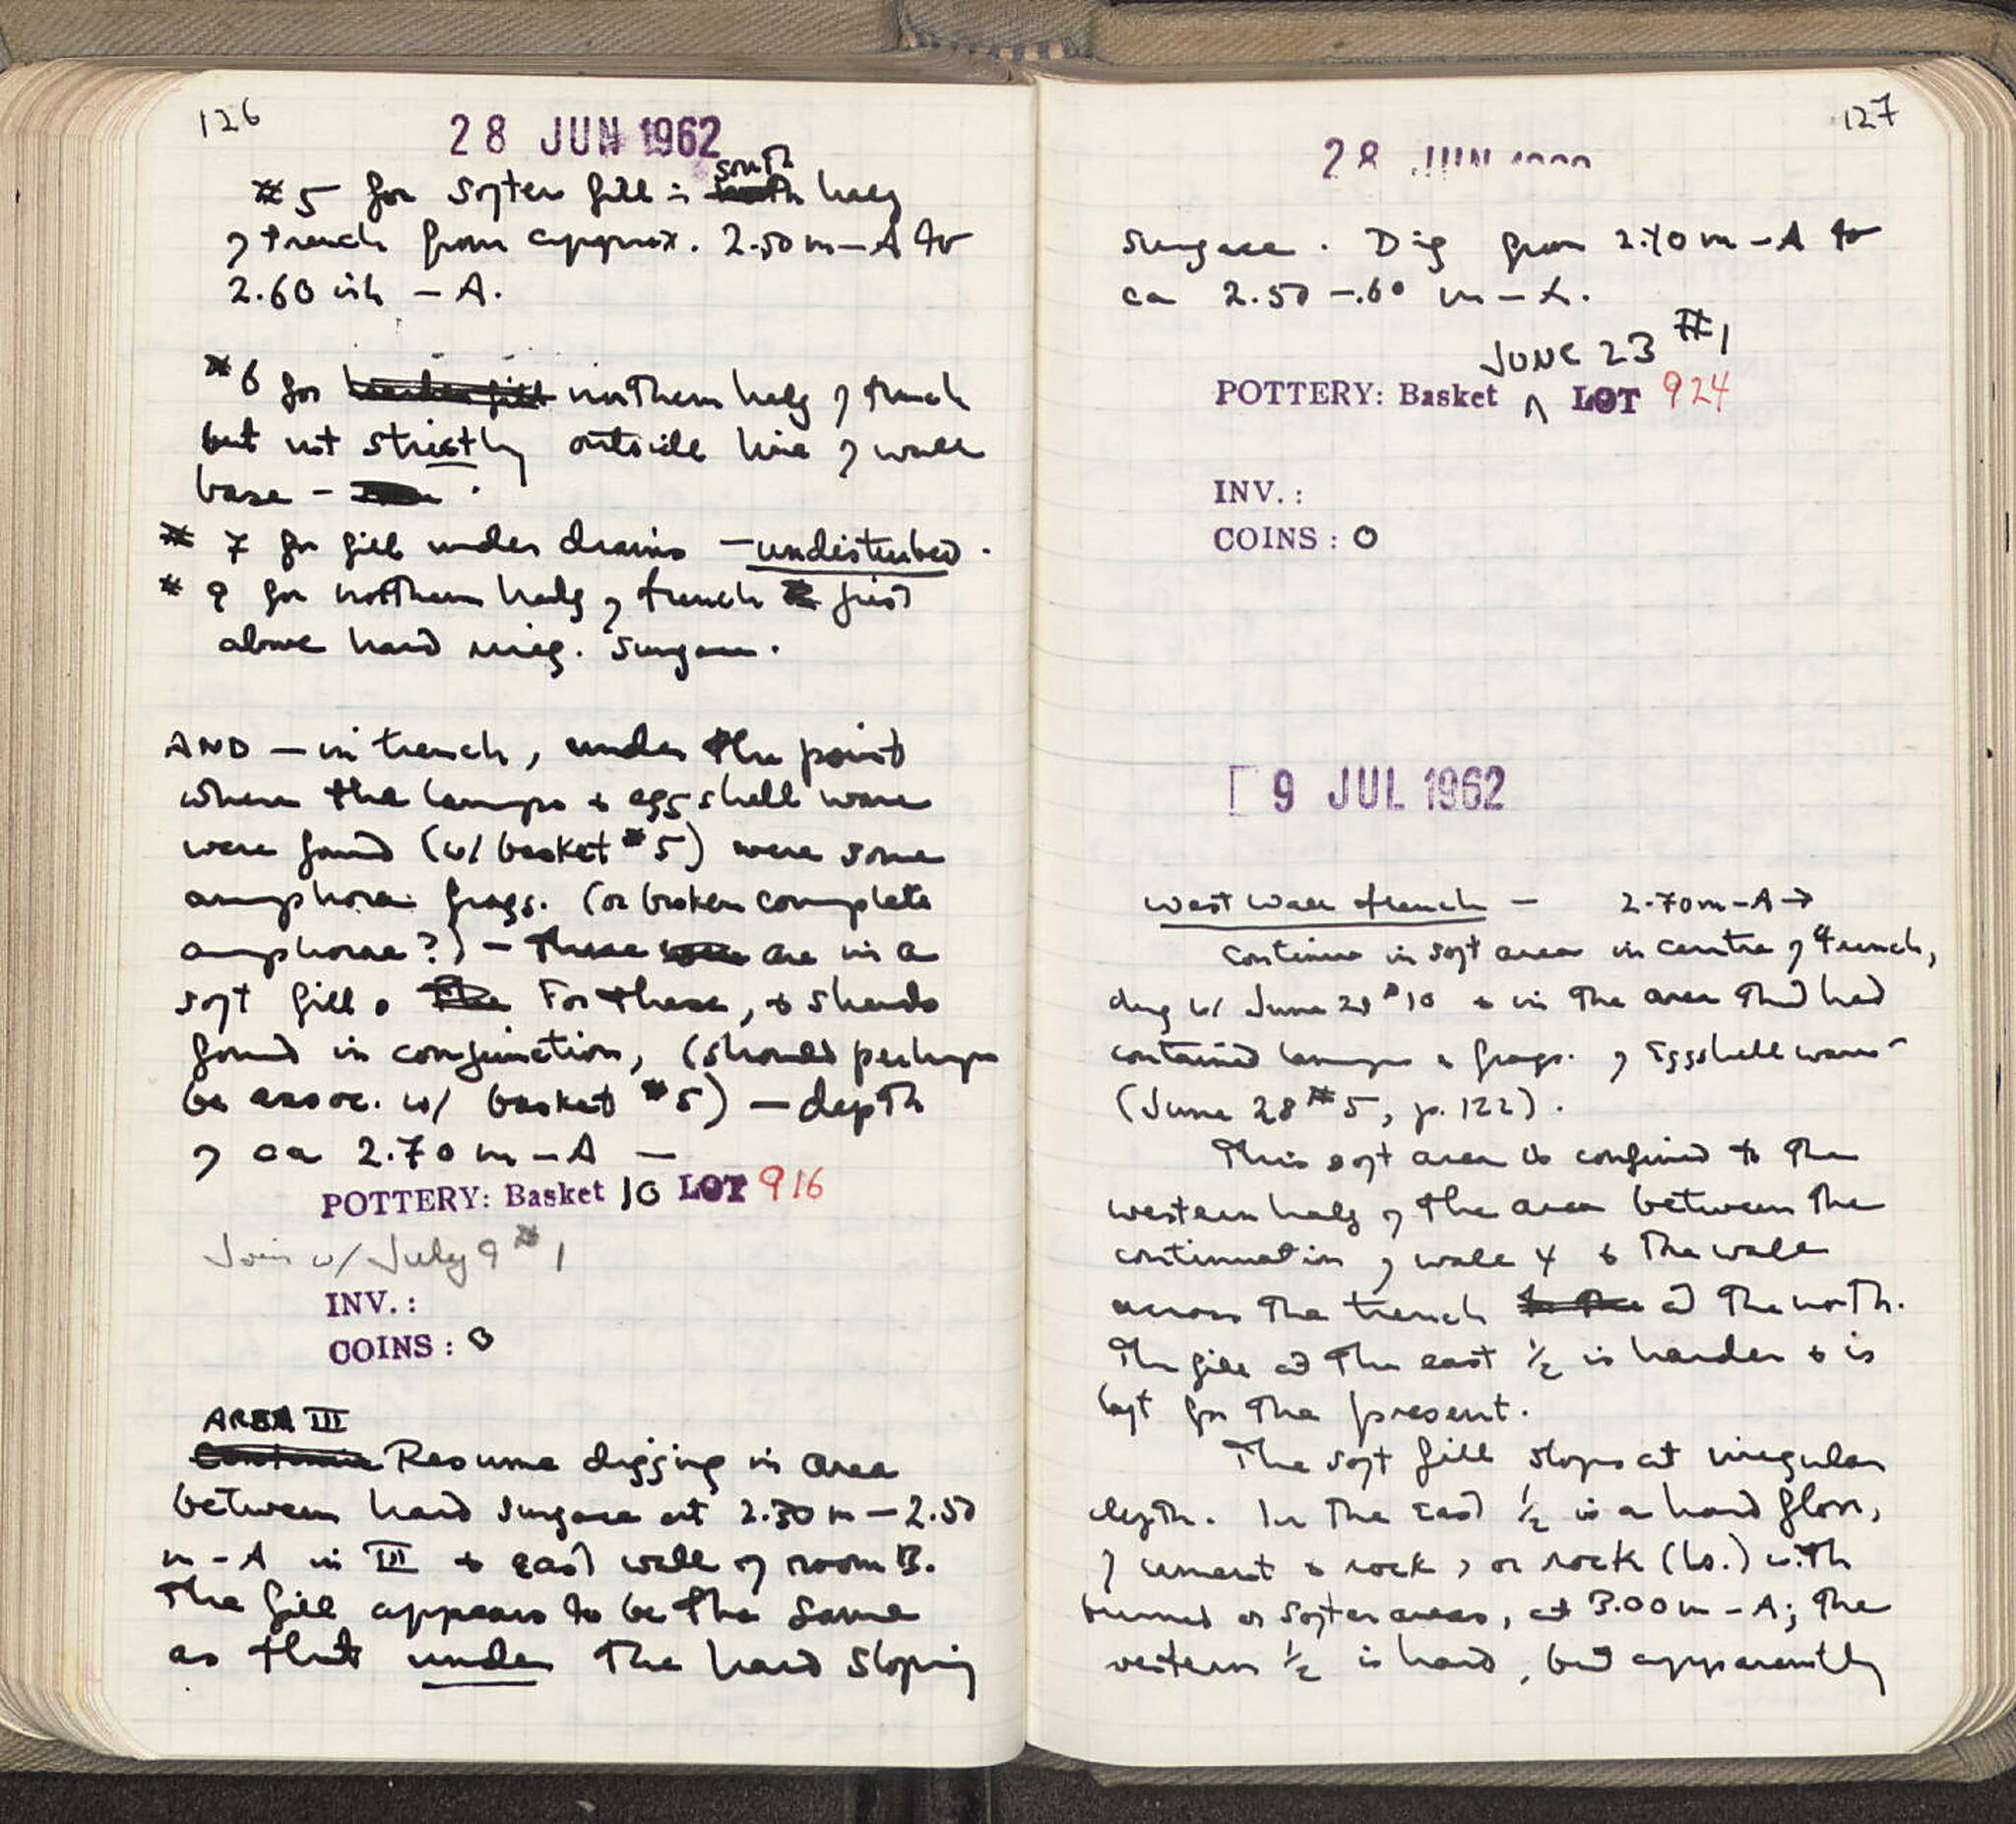 126
28 JUN 1962
south
#5 for softer fill in half
of trench from approx. 2.50 m - A to
2.60 m - A.
#6 for northern half of trench
but not strictly outside line of wall
base -
# 7 for fill under drains - undisturbed.
# 9 for northern half of trench just
above hard irreg. surface.
AND - in trench, under the point
where the lamps & eggshell ware
were found (w/ basket #5) were some
amphora frags. (or broken complete
amphorae?) - These are in a
soft fill. For these, & sherds
found in conjunction, (should perhaps
be assoc. w/ basket #5) - depth
of ca 2.70 m - A -
POTTERY: Basket 10 LOT 916
Join w/ July 9 #1
INV. :
COINS : 0
AREA III
Resume digging in area
between hard surface at 2.30 m - 2.50
m - A in III & east wall of room B.
The fill appears to be the same
as that under the hard sloping
127
28 JUN
surface. Dig from m - A to
ca 2.50 - .60 m - A.
JUNE 23 #1
POTTERY: Basket ^ LOT 924
INV. :
COINS : 0
9 JUL 1962
West Wall trench - 2.70 m - A →
Continue in soft area in centre of trench,
dug w/ June 28 #10 & in the area that had
contained lamps & frags. of Eggshell ware -
(June 28 #5, p. 122).
This soft area is confined to the
western half of the area between the
continuation of wall 4 & the wall
across the trench at the north.
The fill at the east ½ is harder & is
left for the present.
The soft fill stops at irregular
depth. In the East ½ is a hard floor,
of cement & rock, or rock (ls.) with
or softer areas, at 3.00 m - A; the
western ½ is hard, but apparently